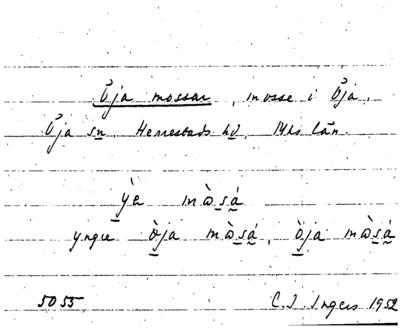 Öja mossar, mosse i Öja,
Öja sn, Herrestads hd, Mhs län.
ỳa mὼsá
yngre ö̀ja mὼsá, ö̀ja mὼsá
5055. C. I. Ingers 1952